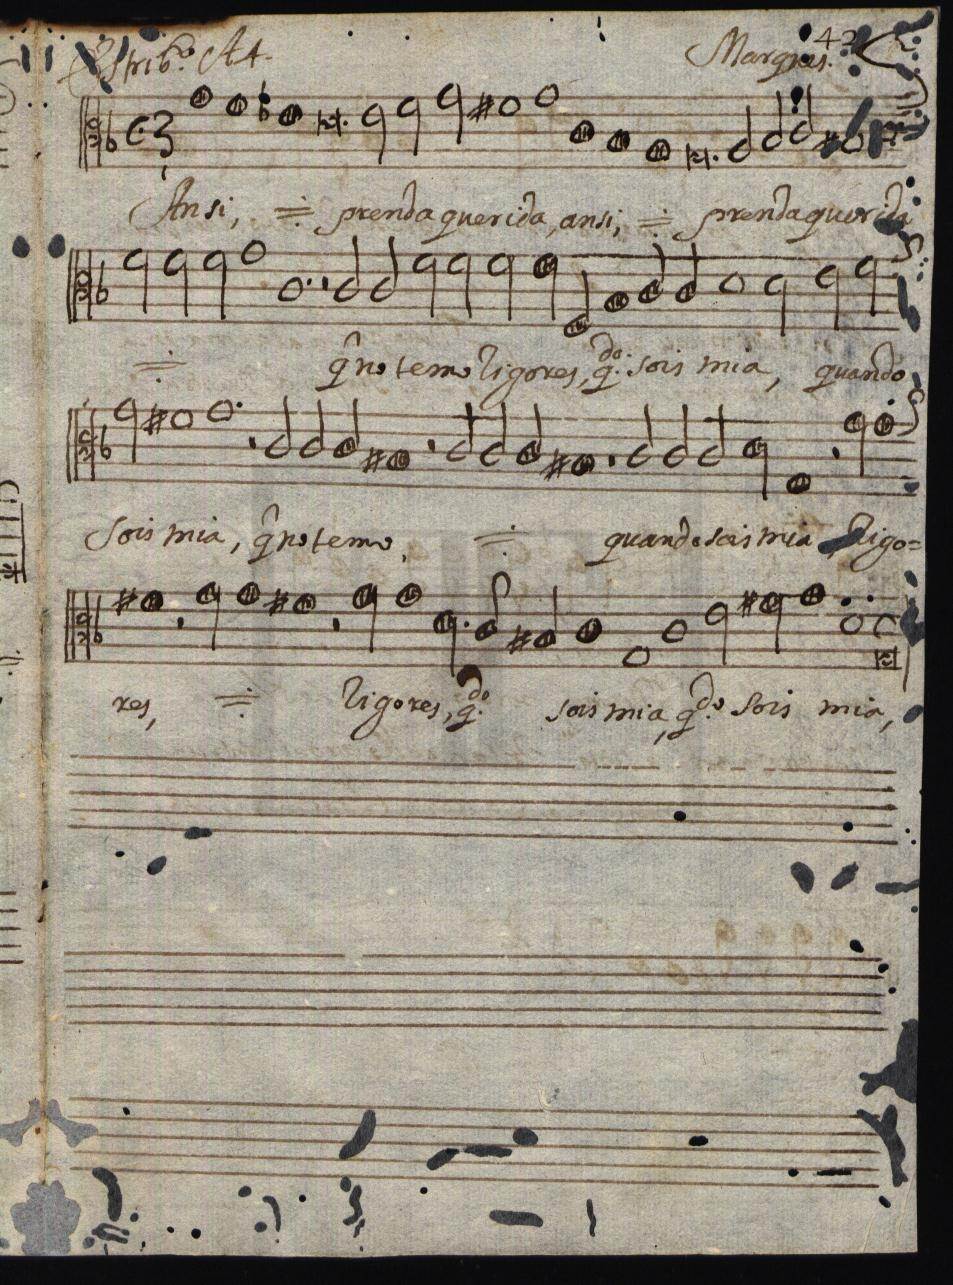 Estribº. A4. Margues. 42
Ansi, prenda querida, ansi, prenda querida
q̂ no temo Rigores, q.do sois mia, quando
sois mia, q̂ no temo, quando sois mia Rigo=
res, Rigores, q.do sois mia, q.do sois mia,